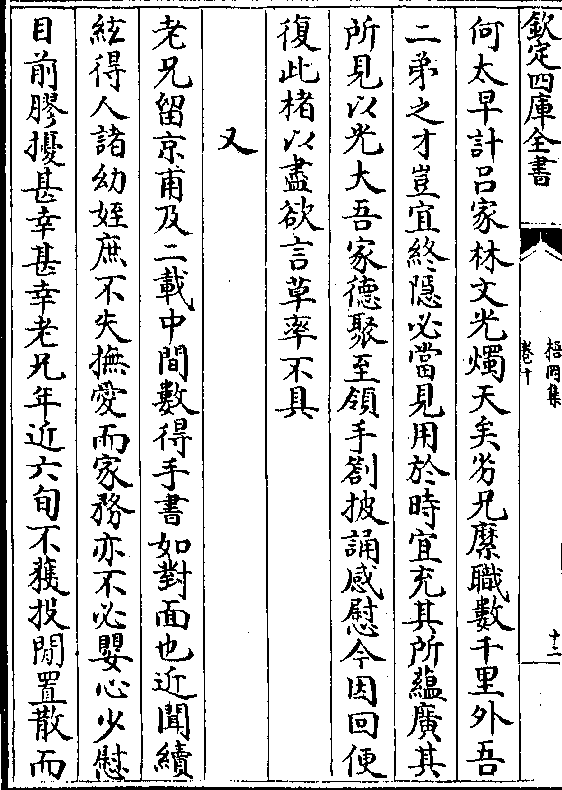 欽定四庫全書
梧岡集
卷十
十二
何太早計吕家林文光燭天矣劣兄縻職數千里外吾
二弟之才豈宜終隠必當見用於時宜充其所藴廣其
所見以光大吾家德聚至領手劄披誦感慰今因回便
復此楮以盡欲言草率不具
又
老兄留京甫及二載中間數得手書如對面也近聞續
絃得人諸幼姪庶不失撫愛而家務亦不必嬰心少慰
目前膠擾甚幸甚幸老兄年近六旬不獲投閒置散而